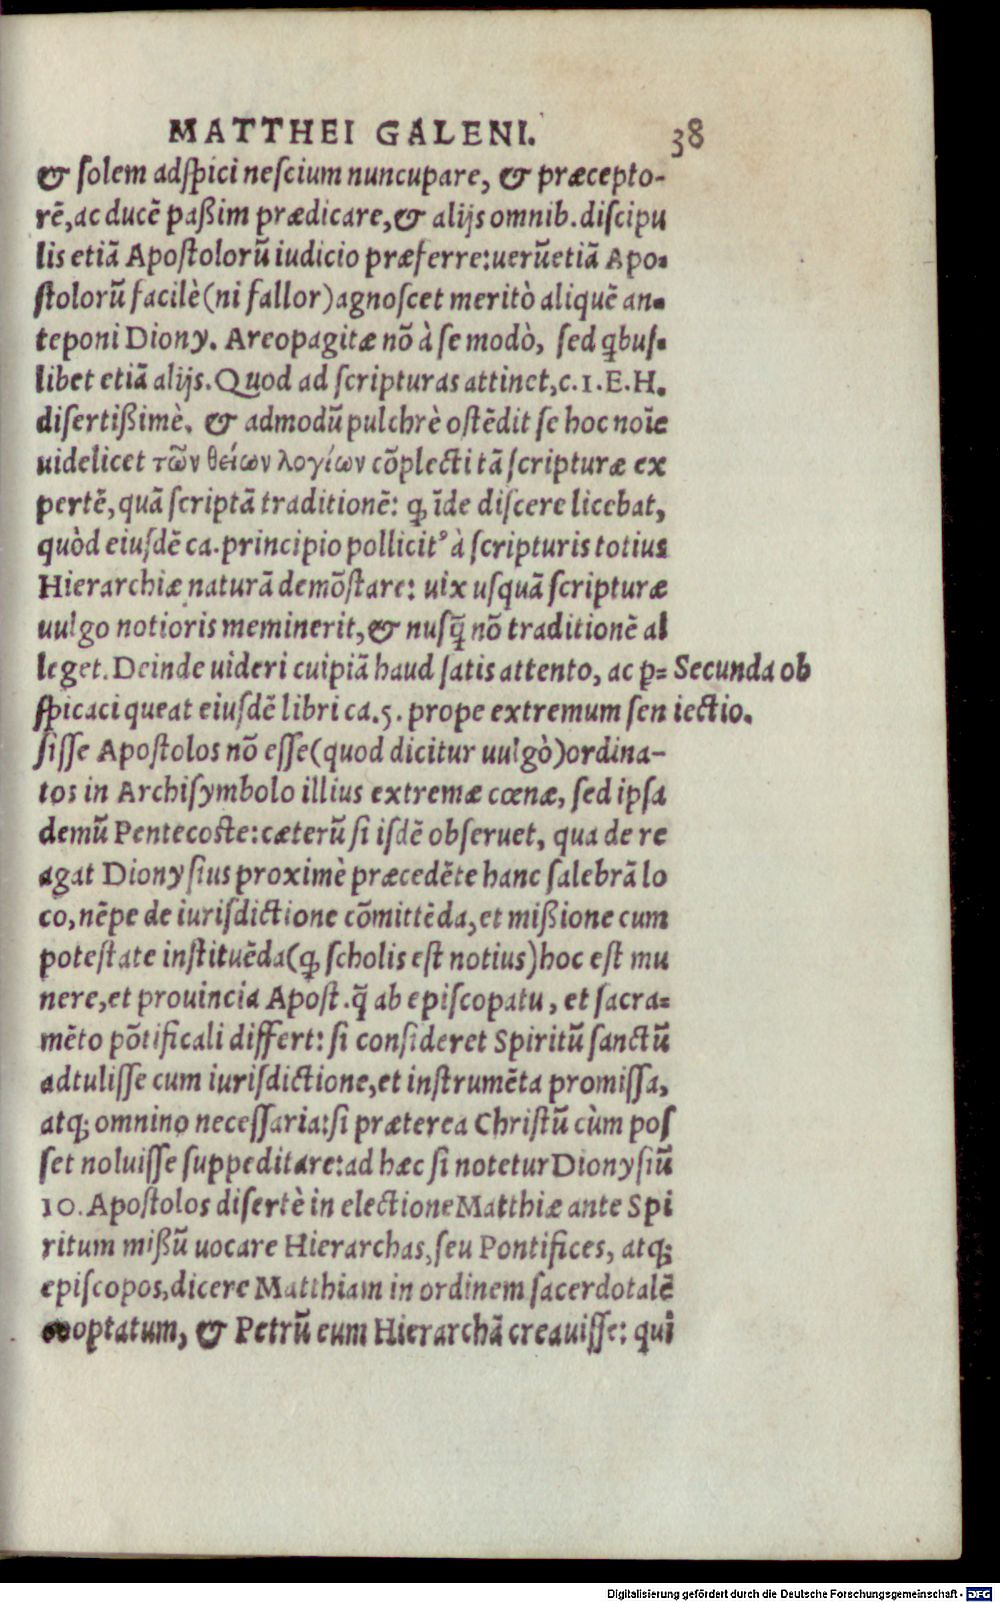 MATTHEI GALENI. 38
& ſolem adſpici neſcium nuncupare, & præcepto-
rē, ac ducē paßim prædicare, & alijs omnib. diſcipu
lis etiā Apoſtolorū iudicio præferre: uerūetiā Apo-
ſtolorū facilè (ni fallor) agnoſcet meritò aliquē an-
teponi Diony. Areopagitæ nō à ſe modò, ſed qbuſ-
libet etiā alijs. Quod ad ſcripturas attinet, c. 1. E. H.
diſertißimè, & admodū pulchrè oſtēdit ſe hoc noīe
uidelicet τῶν θείων λογίων cōplecti tā ſcripturæ ex
pertē, quā ſcriptā traditionē: ꝙ īde diſcere licebat,
quòd eiuſdē ca. principio pollicitꝰ à ſcripturis totius
Hierarchiæ naturā demōſtare: uix uſquā ſcripturæ
uulgo notioris meminerit, & nuſq̄ nō traditionē al
leget. Deinde uideri cuipiā haud ſatis attento, ac ꝑ=
Secunda ob
ſpicaci queat eiuſdē libri ca. 5. prope extremum ſen
iectio.
ſiſſe Apoſtolos nō eſſe (quod dicitur uulgò) ordina-
tos in Archiſymbolo illius extremæ cœnæ, ſed ipſa
demū Pentecoſte: cæterū ſi iſdē obſeruet, qua de re
agat Dionyſius proximè præcedēte hanc ſalebrā lo
co, nēpe de iuriſdictione cōmittēda, et mißione cum
poteſtate inſtituēda (ꝙ ſcholis eſt notius) hoc eſt mu
nere, et prouincia Apoſt. q̄ ab epiſcopatu, et ſacra=
mēto pōtificali differt: ſi conſideret Spiritū ſanctū
adtuliſſe cum iuriſdictione, et inſtrumēta promiſſa,
atq; omnino neceſſaria: ſi præterea Chriſtū cùm poſ
ſet noluiſſe ſuppeditare: ad hæc ſi notetur Dionyſiū
10. Apoſtolos diſertè in electione Matthiæ ante Spi
ritum mißū uocare Hierarchas, ſeu Pontifices, atq;
epiſcopos, dicere Matthiam in ordinem ſacerdotalē
cooptatum, & Petrū eum Hierarchā creauiſſe: qui
Digitalisierung gefördert durch die Deutsche Forschungsgemeinschaft - DFG